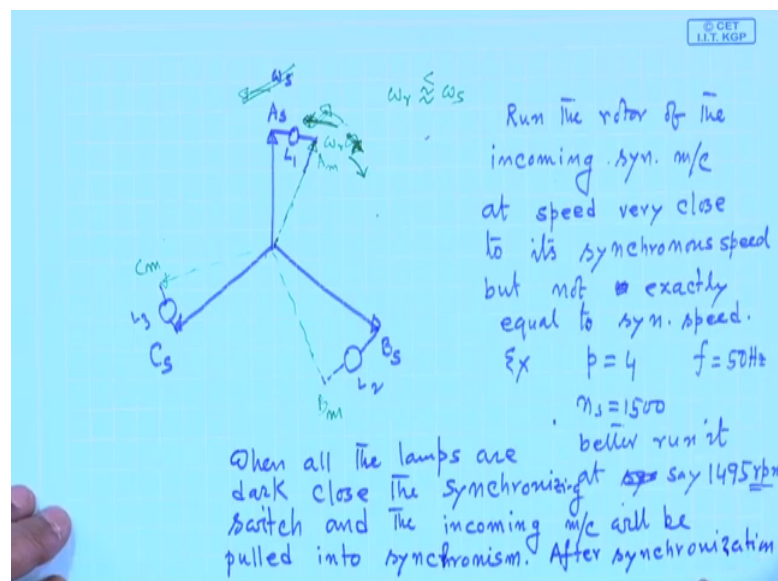 © CET
I.I.T. KGP
ωs
ωr ≲≈ ωs
As
L1
ωr
Am
Cm
L3
Cs
Bs
L2
Bm
Run The rotor of The
incoming syn. m/c
at speed very close
to its synchronous speed
but not exactly
equal to syn. speed.
Ex p=4 f=50Hz
ns=1500
better run it
at say 1495 rpm
When all The lamps are
dark close The synchronizing
switch and The incoming m/c will be
pulled into synchronism. After synchronization